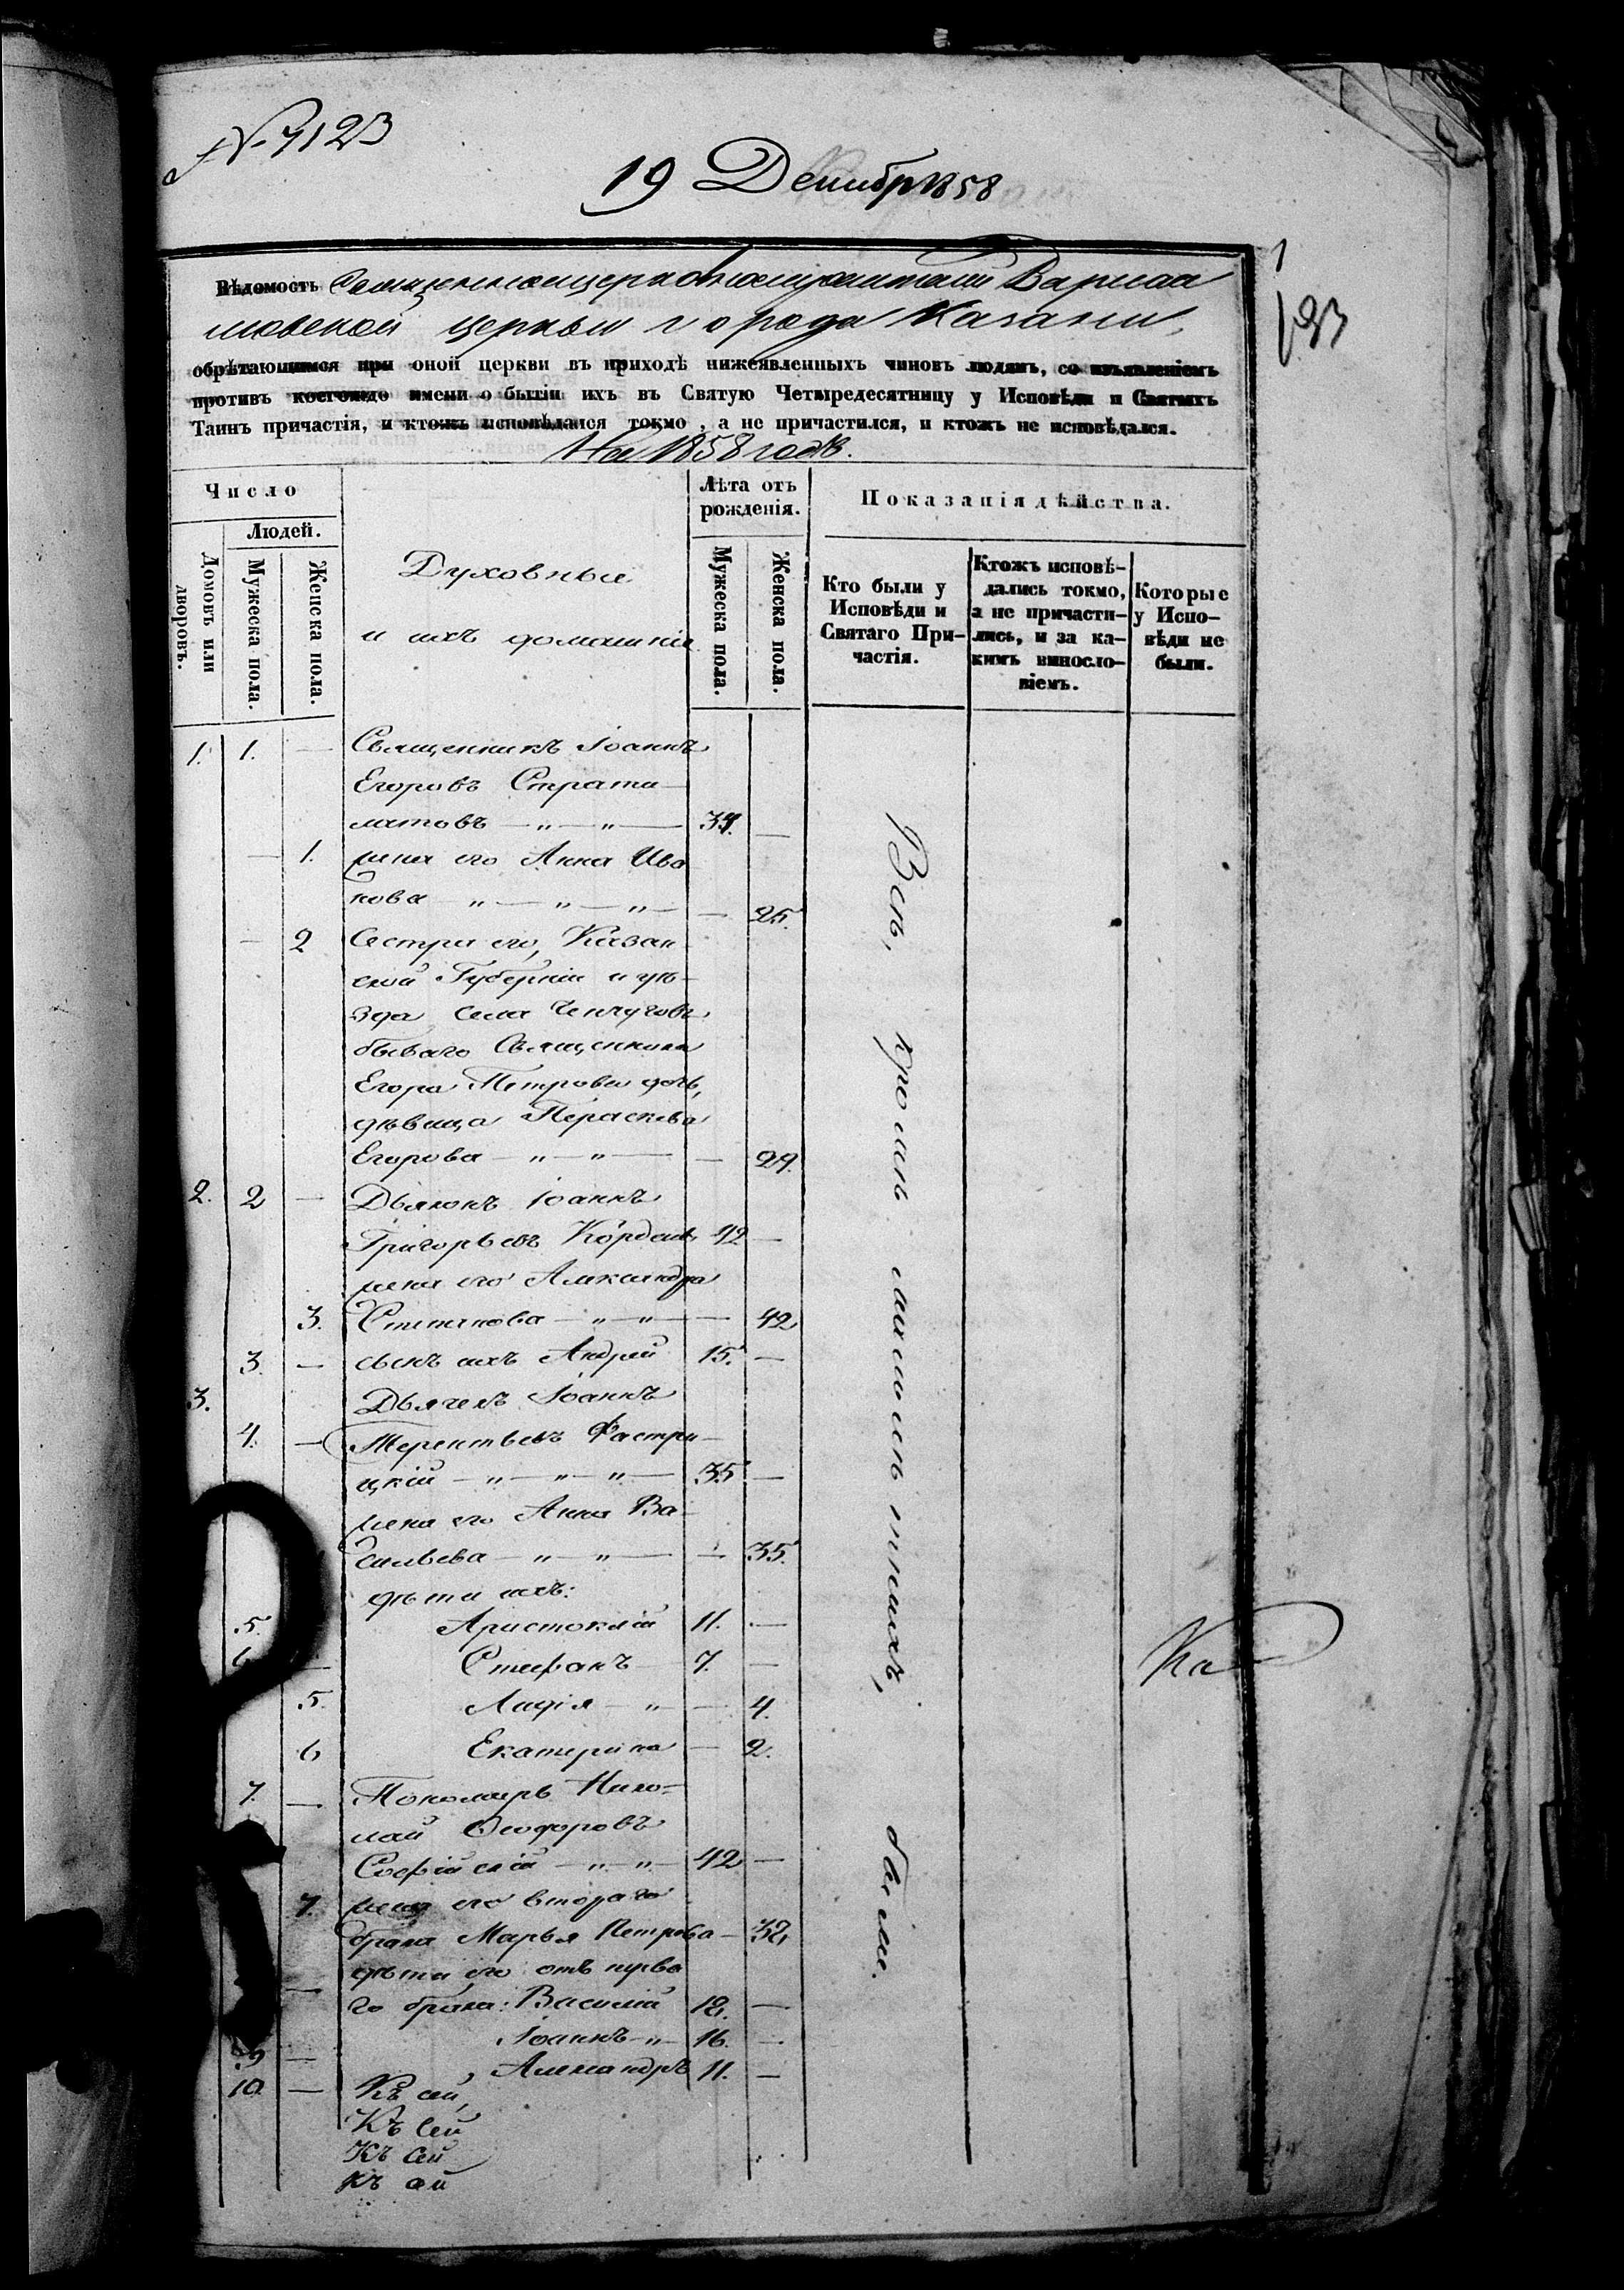 № 7123
19 Декабр 1858
Вѣдомость Священноцерковнослужителей Варлаа
мовской церкви города Казани,
обрѣтающимся при оной церкви въ приходѣ нижеявленныхъ чиновъ людямъ, со изъявленіемъ
противъ коегождо имени о бытіи ихъ въ Святую Четыредесятницу у Исповѣди и Святыхъ
Таинъ причастія, и ктожъ исповѣдался токмо, а не причастился, и ктожъ не исповѣдался.
На 1858 годъ.
Число
Людей.
Домовъ или дворовъ.
Мужеска пола.
Женска пола.
Духовные
и ихъ домашніе
Лѣта отъ рожденія.
Мужеска пола.
Женска пола.
Показанія дѣйства.
Кто были у Исповѣди и Святаго Причастія.
Ктожъ исповѣдались токмо, а не причастились, и за какимъ винословіемъ.
Которые у Исповѣди не были.
1. 1. — Священникъ Іоаннъ
Егоровъ Страти-
латовъ — „ — „ — —
— 1. жена его Анна Ива
нова — „ — „ — „ — — 25.
— 2 Сестра его, Казан
ской Губерніи и уѣ-
зда села
бывшаго Священника
Егора Петрова дочь,
дѣвица Параскева
Егорова — „ — „ — — 29.
2. 2 — Дьяконъ Іоаннъ
Григорьевъ 42 —
жена его Александра
3. Степанова — „ — „ — — 42
3. — сынъ ихъ Андрей 15. —
3. Дьячекъ Іоаннъ
4. — Терентьевъ Фастри-
цкій — „ — „ — „ — 35 —
жена его Анна Ва-
сильева — „ — „ — — 35.
дѣти ихъ:
5. Аристоклій 11. —
6. — Стефанъ — 7. —
5. Лидія — „ — — 4.
6 Екатерина — 2.
7. — Пономарь Нико-
лай Ѳеодоровъ
Софійскій — „ — „ — 42 —
7. жена его втораго
брака Марья Петрова — 32
— дѣти его отъ перва
го брака: Василій 18. —
9 — Іоаннъ — „ — 16. —
10 — Александръ 11. —
Къ сей
Къ сей
Къ сей
Къ сей
Всѣ, кромѣ малолѣтнихъ, были.
Ка